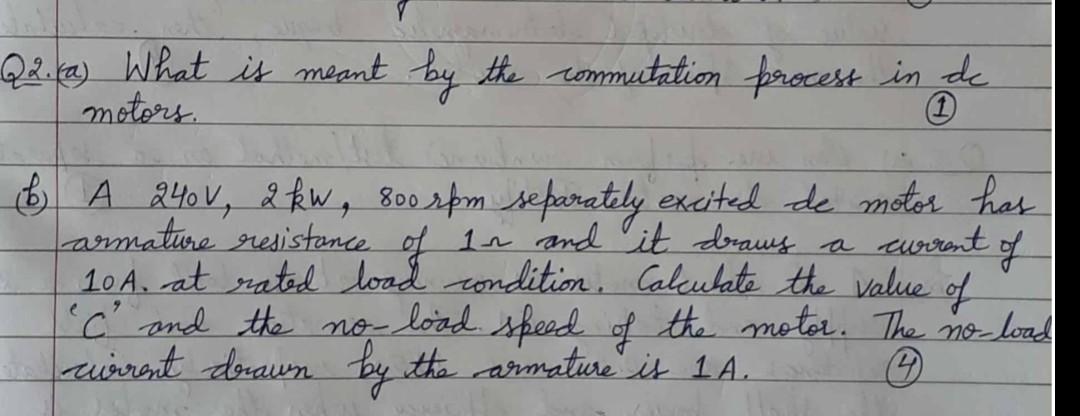 Q2.(a) What is meant by the commutation process in dc
motors. ①
(b) A 240V, 2kW, 800 rpm separately excited dc motor has
armature resistance of 1Ω and it draws a current of
10A. at rated load condition. Calculate the value of
'C' and the no-load speed of the motor. The no-load
current drawn by the armature is 1A. ④